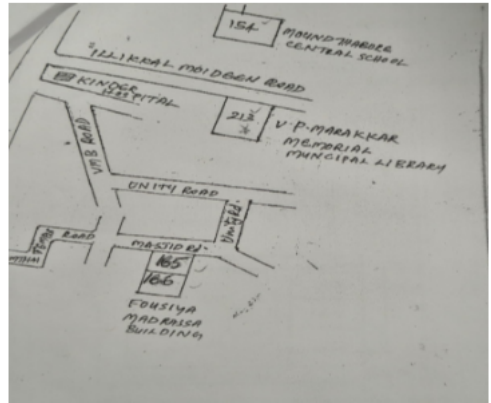 154
MOUND THABORE
CENTRAL SCHOOL
ILLIKKAL MOIDEEN ROAD
KINDER
HOSPITAL
213
V.P. MARAKKAR
MEMORIAL
MUNCIPAL LIBRARY
VMB ROAD
UNITY ROAD
ROAD
MASJID RD.
165
166
FOUSIYA
MADRASSA
BUILDING